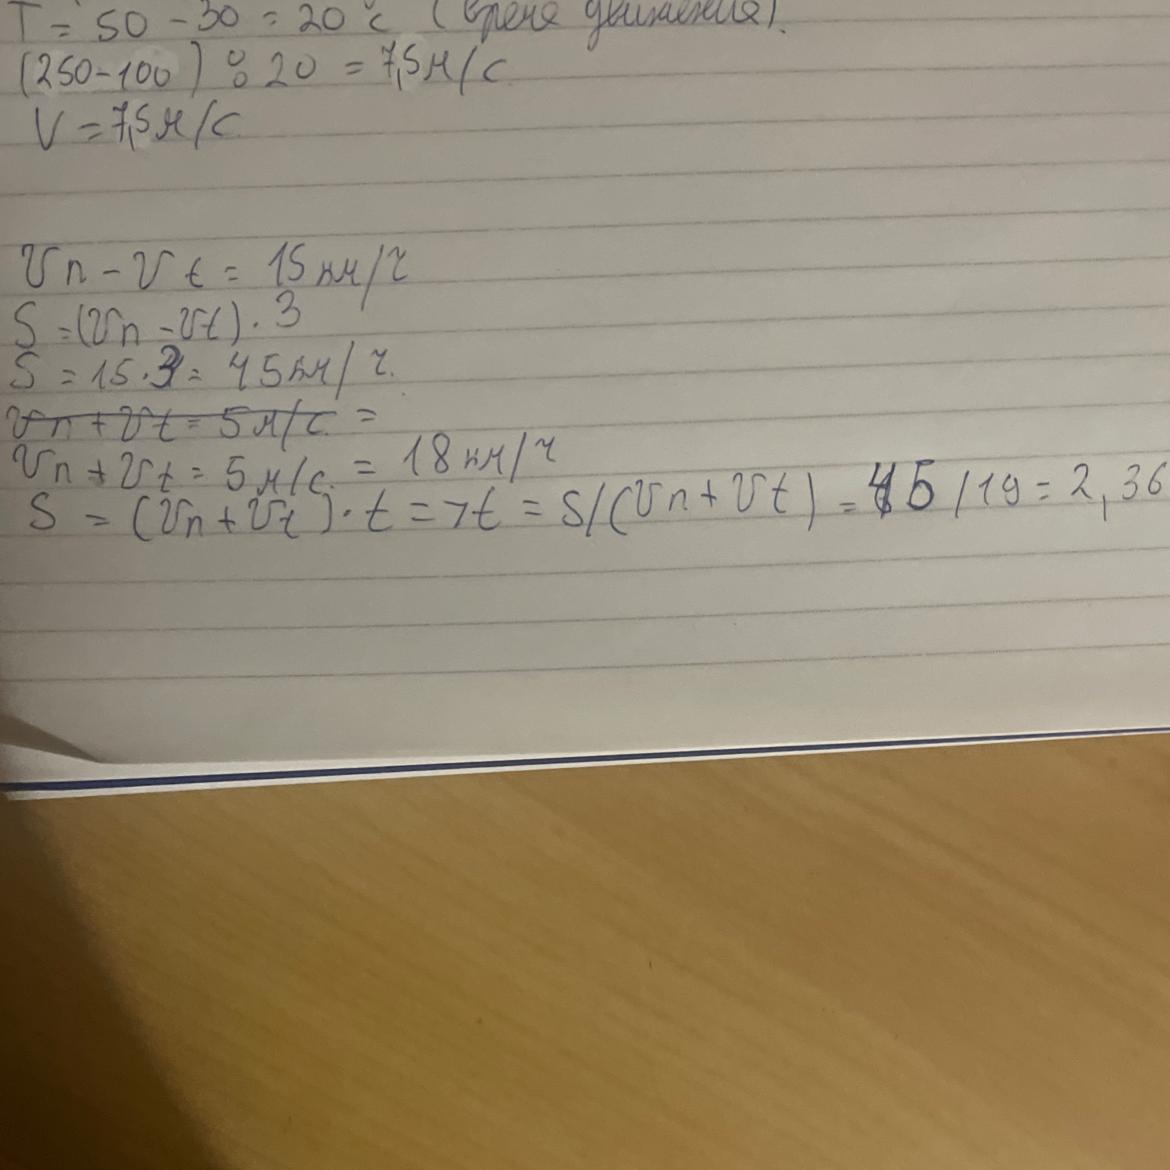 T = 50 - 30 = 20 c (время движения).
(250-100) : 20 = 7,5м/с
V = 7,5м/с
Vп - Vt = 15км/ч
S =(Vп - Vt) . 3
S = 15.3= 45км/ч.
Vп + Vt = 5м/с =
Vп + Vt = 5м/с. = 18км/ч
S = (Vп + Vt) . t => t = S/(Vп + Vt) = 45/19=2,36